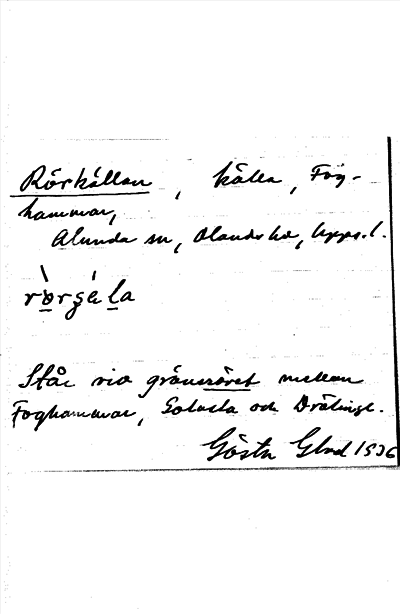 Rörkällan, källa, Fog-
hammar,
Alunda sn, Olands hd, Upps. l.
rörşäla
Står vid gränsröret mellan
Foghammar, Golvsta och Drälinge.
Gösta Glad 1936